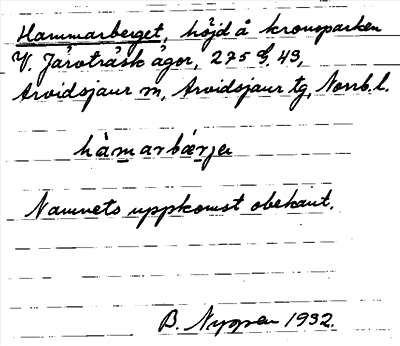 Hammarberget, höjd å kronoparken
V. Järvträsk ägor, 275 G. 43,
Arvidsjaur sn, Arvidsjaur tg, Norrb. l.
hàmarbǽrjə
Namnets uppkomst obekant.
B. Nyman 1932.